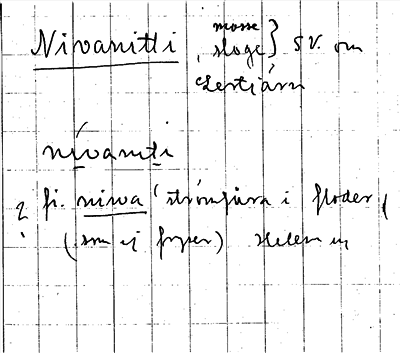 Nivanitti mosse
sloge } SV. om
Lestijärvi
nivaniti
? fi. niwa 'strömfåra i floder
(som ej fryser)